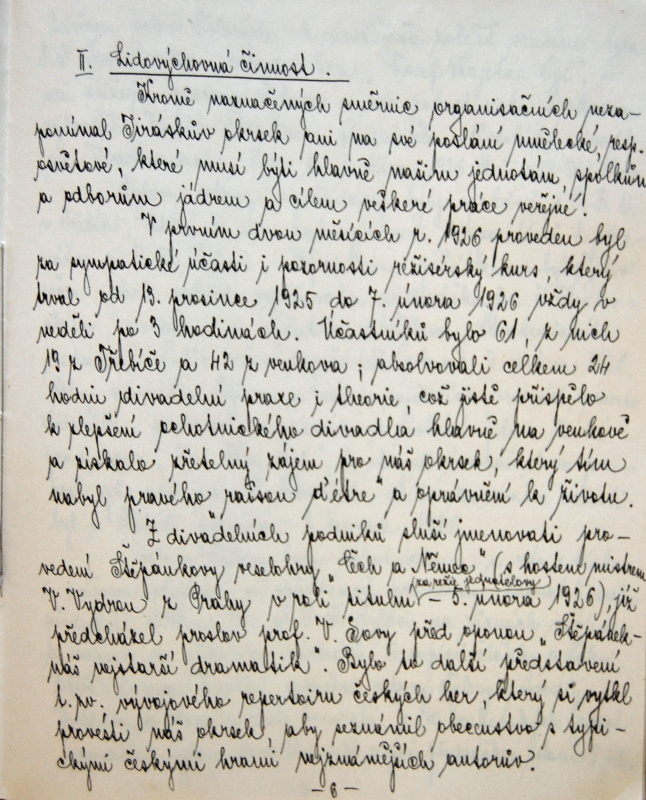 II. Lidovýchovná činnost.
Kromě naznačených směrnic organisačních neza-
pomínal Jiráskův okrsek ani na své poslání umělecké, resp.
osvětové, které musí býti hlavně našim jednotám, spolkům
a odborům jádrem a cílem veškeré práce veřejné.
V prvním dvou měsících r. 1926 proveden byl
za sympatické účasti i pozornosti režisérský kurs, který
trval od 13. prosince 1925 do 7. února 1926 vždy v
neděli po 3 hodinách. Účastníků bylo 61, z nich
19 z Třebíče a 42 z venkova; absolvovali celkem 24
hodin divadelní praxe i theorie, což jistě přispělo
k zlepšení ochotnického divadla hlavně na venkově
a získalo zřetelný zájem pro náš okrsek, který tím
nabyl pravého „raison d'être" a oprávnění k životu.
Z divadelních podniků sluší jmenovati pro-
vedení Štěpánkovy veselohry „Čech a Němec" (s hostem mistrem
V. Vydrou z Prahy v roli titulní (za režie jednatelovy) – 5. února 1926), již
předcházel proslov prof. V. Sovy před oponou „Štěpánek-
náš nejstarší dramatik". Bylo to další představení
t. zv. vývojového repertoiru českých her, který si vytkl
provésti náš okrsek, aby seznámil obecenstvo s typi-
ckými českými hrami nejznámějších autorův.
– 6 –